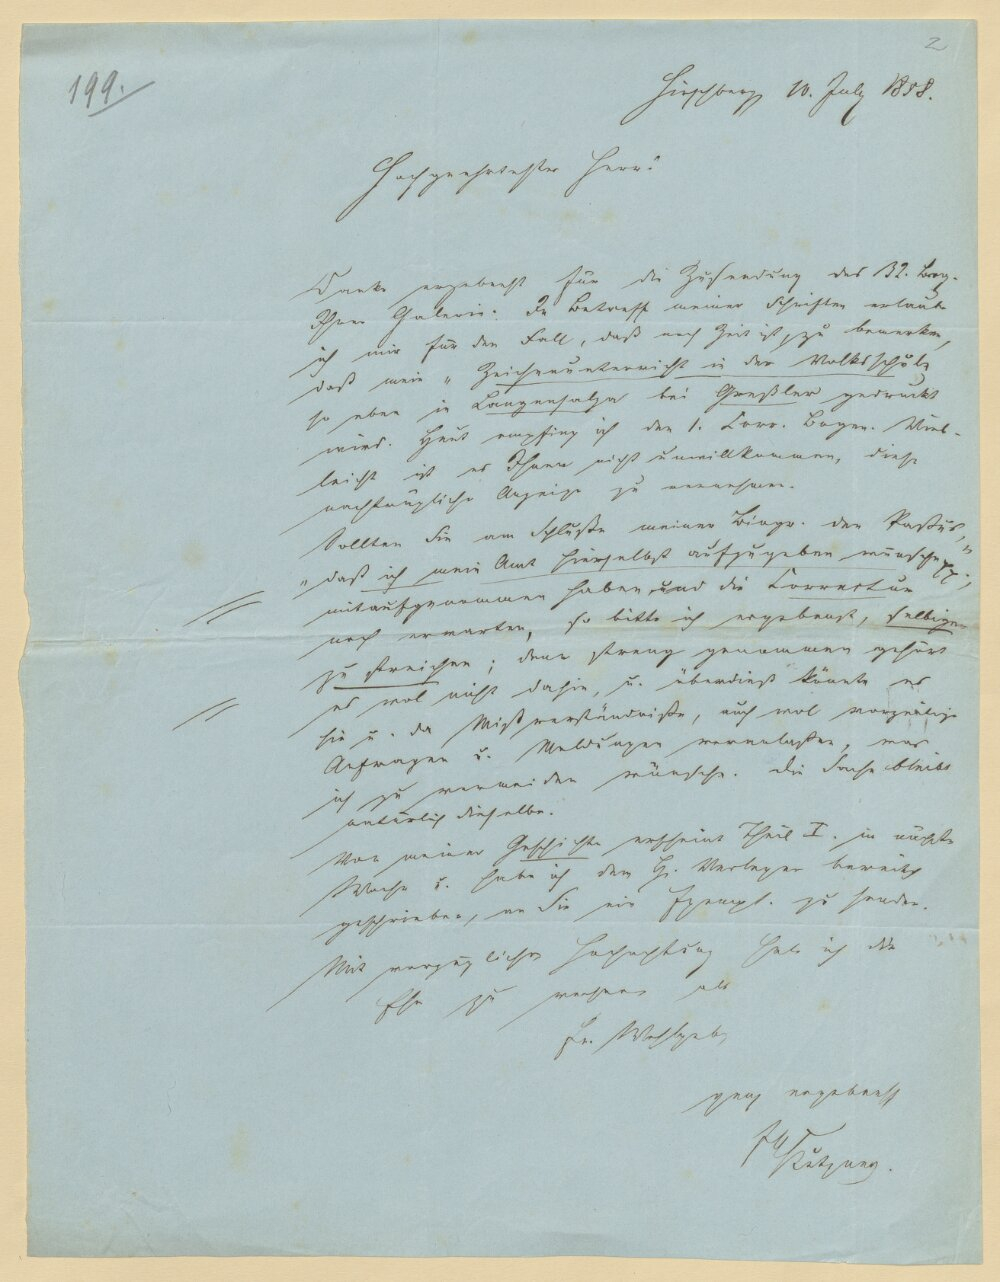 2
199.
Hirschberg 10. July 1858.
Hochgeehrtester Herr!
Danke ergebenst für die Zusendung des 32. Bog.
Ihrer Galerie. In Betreff meiner Schriften erlaube
ich mir für den Fall, daß noch Zeit ist, zu bemerken,
daß mein „Zeichenunterricht in der Volksschule
so eben in Langensalza bei Greßler gedruckt
wird. Heut empfing ich den 1. Corr. Bogen. Viel-
leicht ist es Ihnen nicht unwillkommen, diese
nachträgliche Anzeige zu vernehmen.
Sollten Sie am Schluße meiner Biogr. den Passus,
„daß ich mein Amt hierselbst aufzugeben wünsche"
mitaufgenommen haben, und die Correctur
noch erwarten, so bitte ich ergebenst, selbigen
zu streichen; denn streng genommen gehört
es wol nicht dahin, u. überdieß könnte es
hie u. da Mißverständniße, auch wol vorzeitige
Anfragen u. Meldungen veranlaßen, was
ich zu vermeiden wünsche. Die Sache bleibt
natürlich dieselbe.
Von meiner Geschichte erscheint Theil I. in nächster
Woche u. habe ich dem H. Verleger bereits
geschrieben, an Sie ein Exempl. zu senden.
Mit vorzüglicher Hochachtung habe ich die
Ehre zu verharren als
Ew. Wohlgeb.
ganz ergebenst